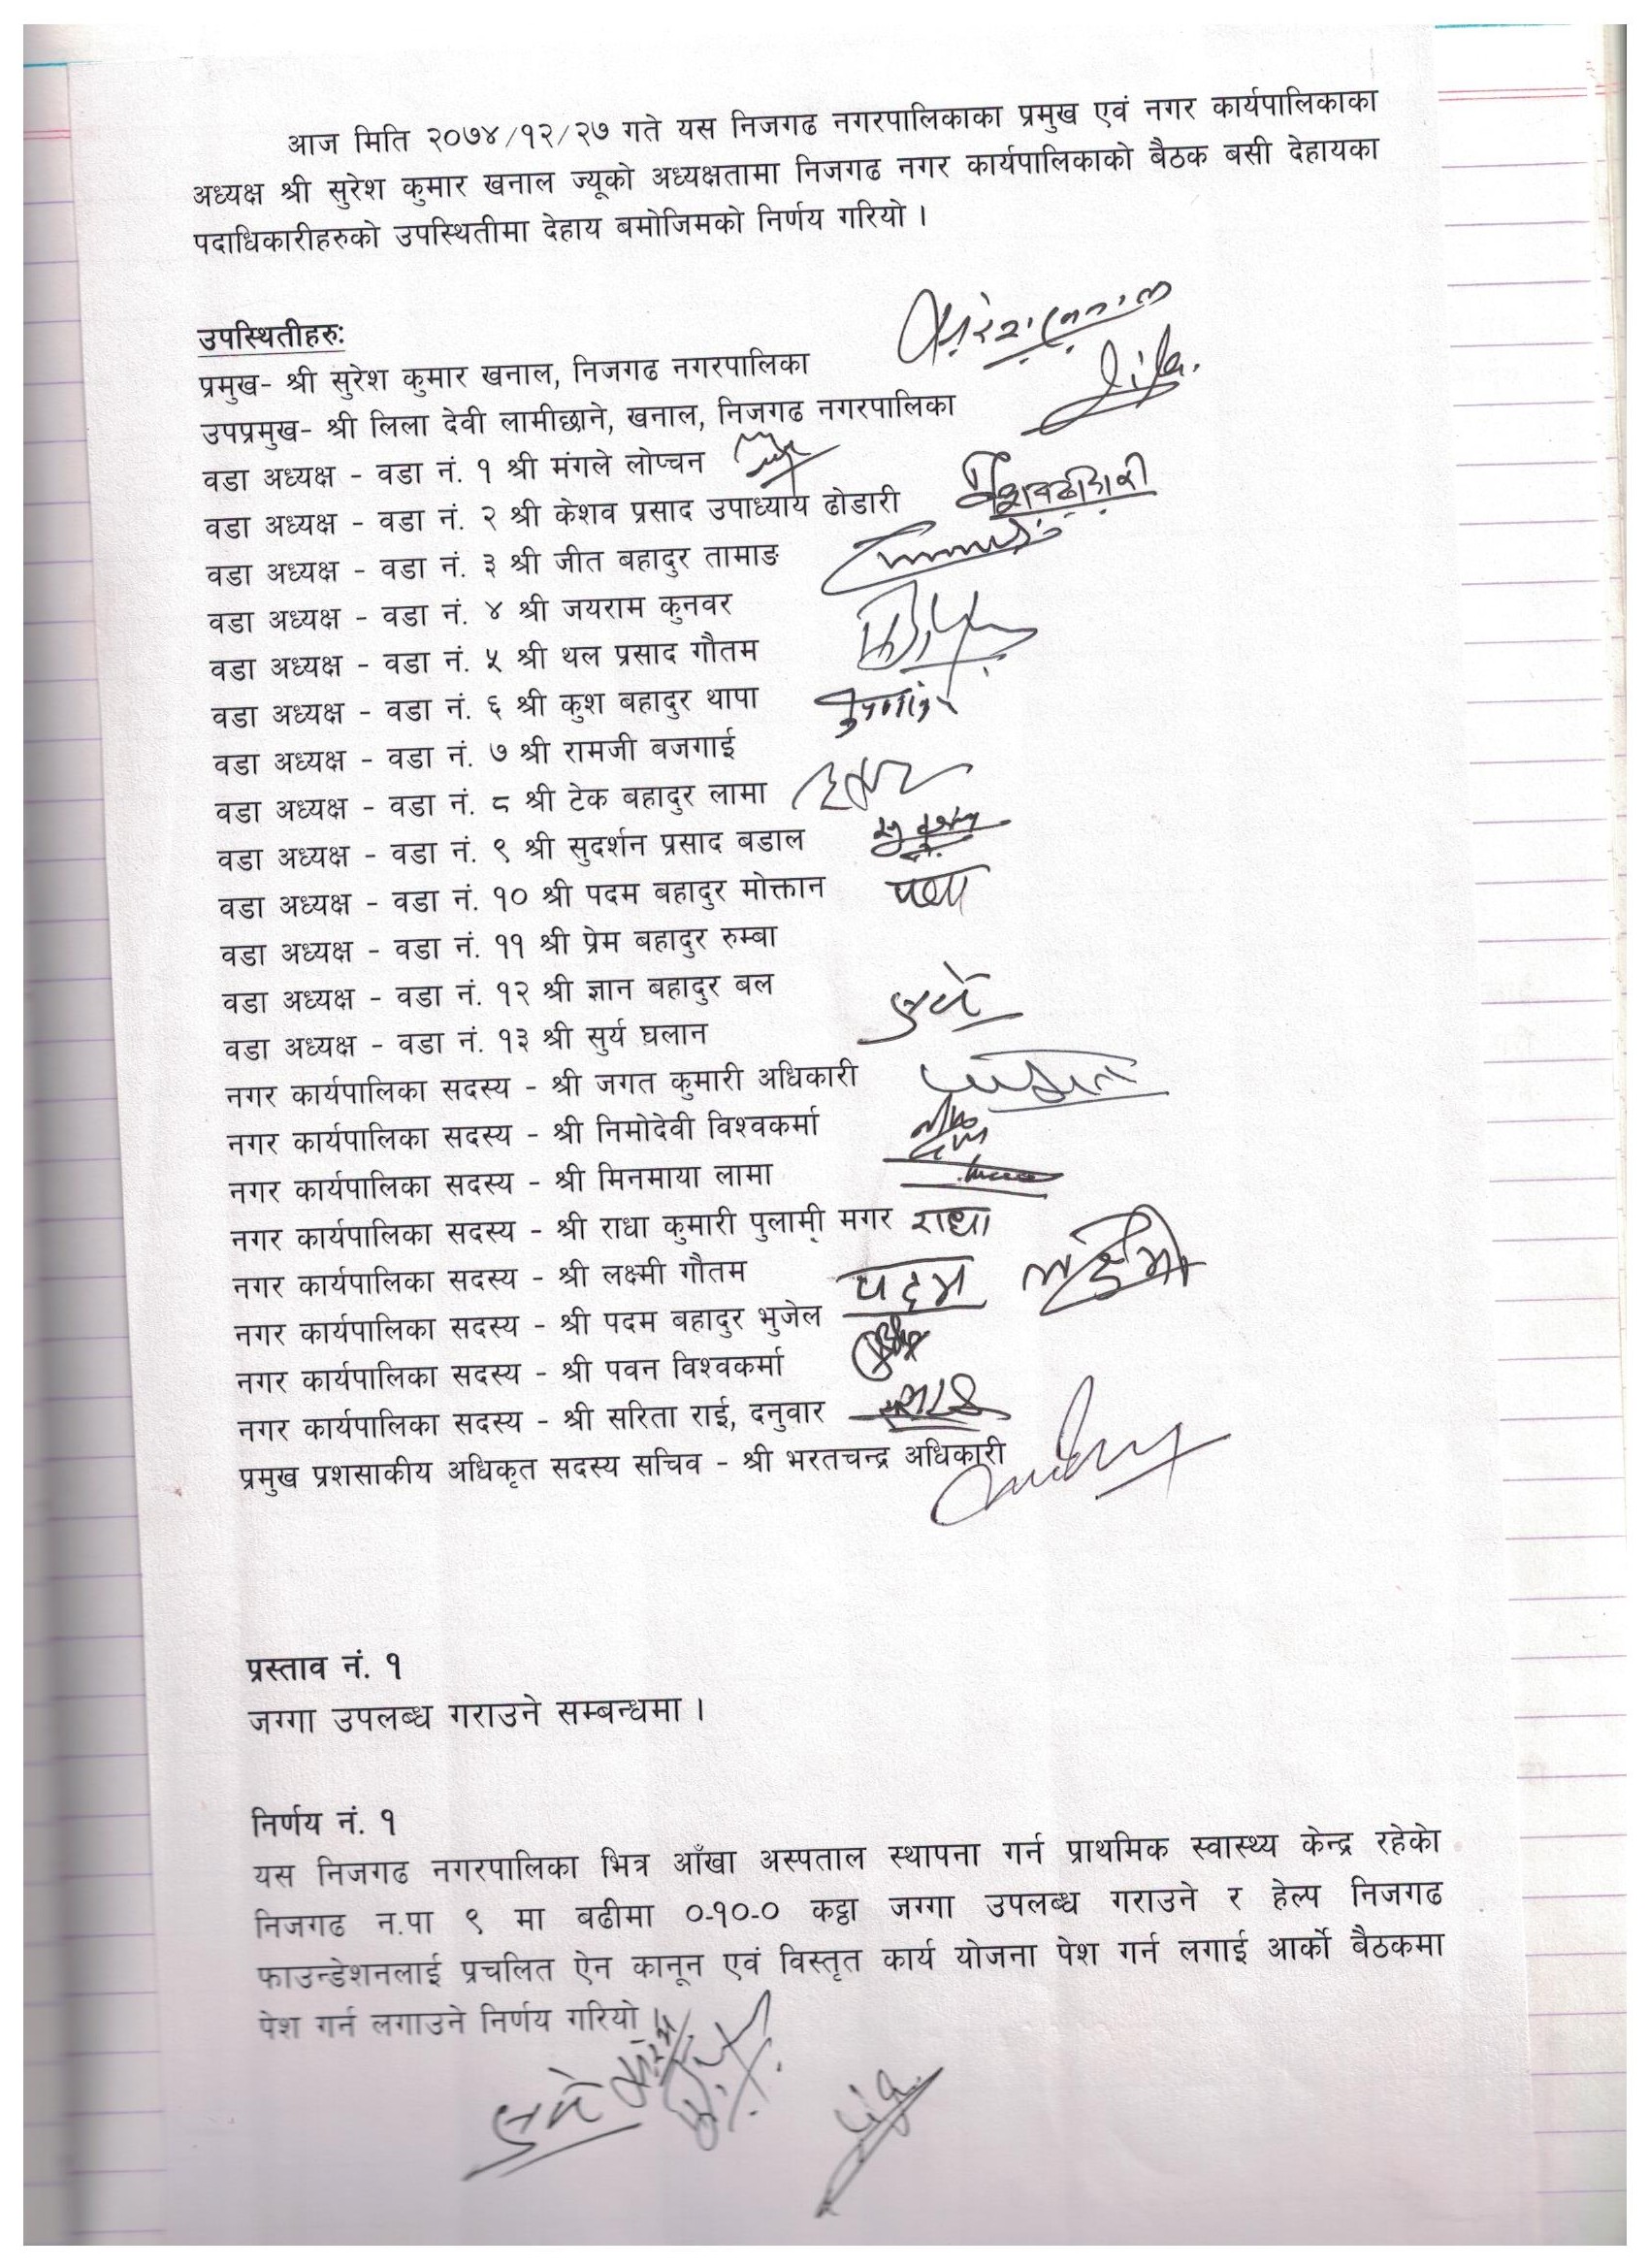 आज मिति २०७४/१२/२७ गते यस निजगढ नगरपालिकाका प्रमुख एवं नगर कार्यपालिकाका
अध्यक्ष श्री सुरेश कुमार खनाल ज्यूको अध्यक्षतामा निजगढ नगर कार्यपालिकाको बैठक बसी देहायका
पदाधिकारीहरुको उपस्थितीमा देहाय बमोजिमको निर्णय गरियो ।
उपस्थितीहरुः
प्रमुख- श्री सुरेश कुमार खनाल, निजगढ नगरपालिका
उपप्रमुख- श्री लिला देवी लामीछाने, खनाल, निजगढ नगरपालिका
वडा अध्यक्ष - वडा नं. १ श्री मंगले लोप्चन
वडा अध्यक्ष - वडा नं. २ श्री केशव प्रसाद उपाध्याय ढोडारी
वडा अध्यक्ष - वडा नं. ३ श्री जीत बहादुर तामाङ
वडा अध्यक्ष - वडा नं. ४ श्री जयराम कुनवर
वडा अध्यक्ष - वडा नं. ५ श्री थल प्रसाद गौतम
वडा अध्यक्ष - वडा नं. ६ श्री कुश बहादुर थापा
वडा अध्यक्ष - वडा नं. ७ श्री रामजी बजगाई
वडा अध्यक्ष - वडा नं. ८ श्री टेक बहादुर लामा
वडा अध्यक्ष - वडा नं. ९ श्री सुदर्शन प्रसाद बडाल
वडा अध्यक्ष - वडा नं. १० श्री पदम बहादुर मोक्तान
वडा अध्यक्ष - वडा नं. ११ श्री प्रेम बहादुर रुम्बा
वडा अध्यक्ष - वडा नं. १२ श्री ज्ञान बहादुर बल
वडा अध्यक्ष - वडा नं. १३ श्री सुर्य घलान
नगर कार्यपालिका सदस्य - श्री जगत कुमारी अधिकारी
नगर कार्यपालिका सदस्य - श्री निमोदेवी विश्वकर्मा
नगर कार्यपालिका सदस्य - श्री मिनमाया लामा
नगर कार्यपालिका सदस्य - श्री राधा कुमारी पुलामी मगर राधा
नगर कार्यपालिका सदस्य - श्री लक्ष्मी गौतम लक्ष्मी
नगर कार्यपालिका सदस्य - श्री पदम बहादुर भुजेल पदम
नगर कार्यपालिका सदस्य - श्री पवन विश्वकर्मा
नगर कार्यपालिका सदस्य - श्री सरिता राई, दनुवार
प्रमुख प्रशसाकीय अधिकृत सदस्य सचिव - श्री भरतचन्द्र अधिकारी
प्रस्ताव नं. १
जग्गा उपलब्ध गराउने सम्बन्धमा ।
निर्णय नं. १
यस निजगढ नगरपालिका भित्र आँखा अस्पताल स्थापना गर्न प्राथमिक स्वास्थ्य केन्द्र रहेको
निजगढ न.पा ९ मा बढीमा ०-१०-० कठ्ठा जग्गा उपलब्ध गराउने र हेल्प निजगढ
फाउन्डेशनलाई प्रचलित ऐन कानून एवं विस्तृत कार्य योजना पेश गर्न लगाई आर्को बैठकमा
पेश गर्न लगाउने निर्णय गरियो ।